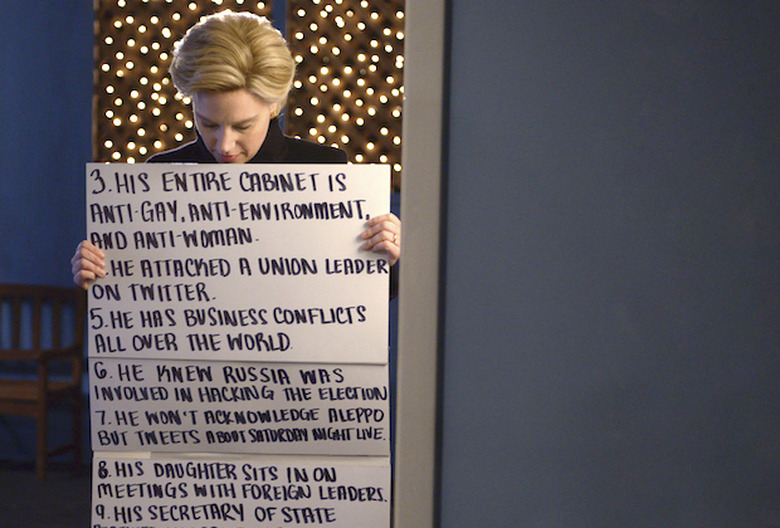 3. HIS ENTIRE CABINET IS
ANTI-GAY, ANTI-ENVIRONMENT,
AND ANTI-WOMAN.
. HE ATTACKED A UNION LEADER
ON TWITTER.
5. HE HAS BUSINESS CONFLICTS
ALL OVER THE WORLD.
6. HE KNEW RUSSIA WAS
INVOLVED IN HACKING THE ELECTION
7. HE WON'T ACKNOWLEDGE ALEPPO
BUT TWEETS ABOUT SATURDAY NIGHT LIVE.
8. HIS DAUGHTER SITS IN ON
MEETINGS WITH FOREIGN LEADERS.
9. HIS SECRETARY OF STATE